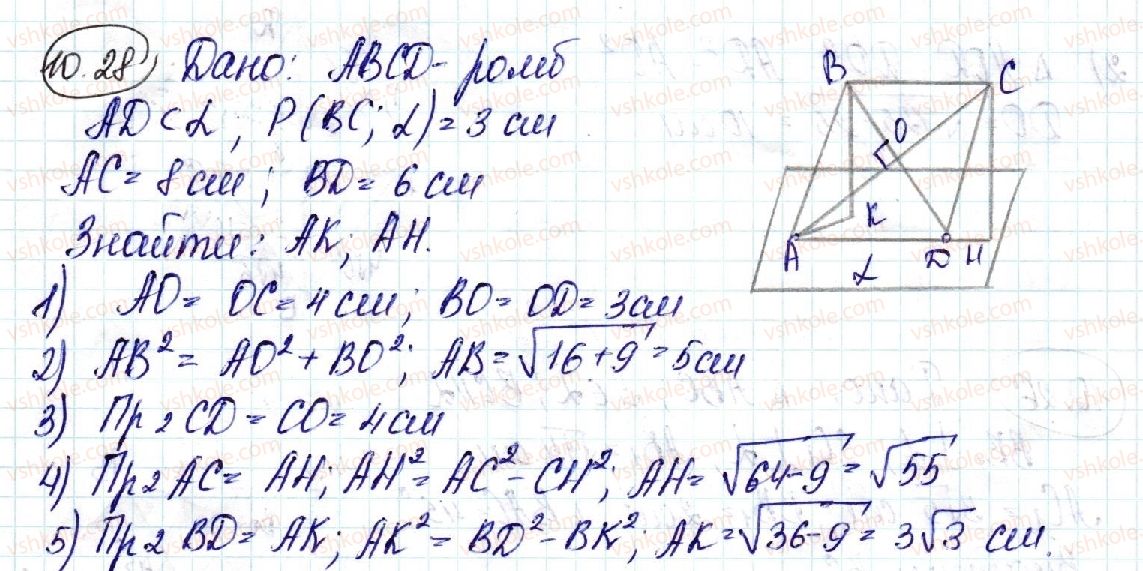 10.28) Дано: ABCD - ромб
AD ⊂ α; P(BC; α) = 3 см
AC = 8 см; BD = 6 см
Знайти: AK; AH.
B C
O
K
A D H
α
1) AO = OC = 4 см; BO = OD = 3 см
2) AB² = AO² + BO²; AB = √16+9 = 5 см
3) Пр₂ CD = CO = 4 см
4) Пр₂ AC = AH; AH² = AC² - CH²; AH = √64-9 = √55
5) Пр₂ BD = AK; AK² = BD² - BK²; AK = √36-9 = 3√3 см.
vshkole.com